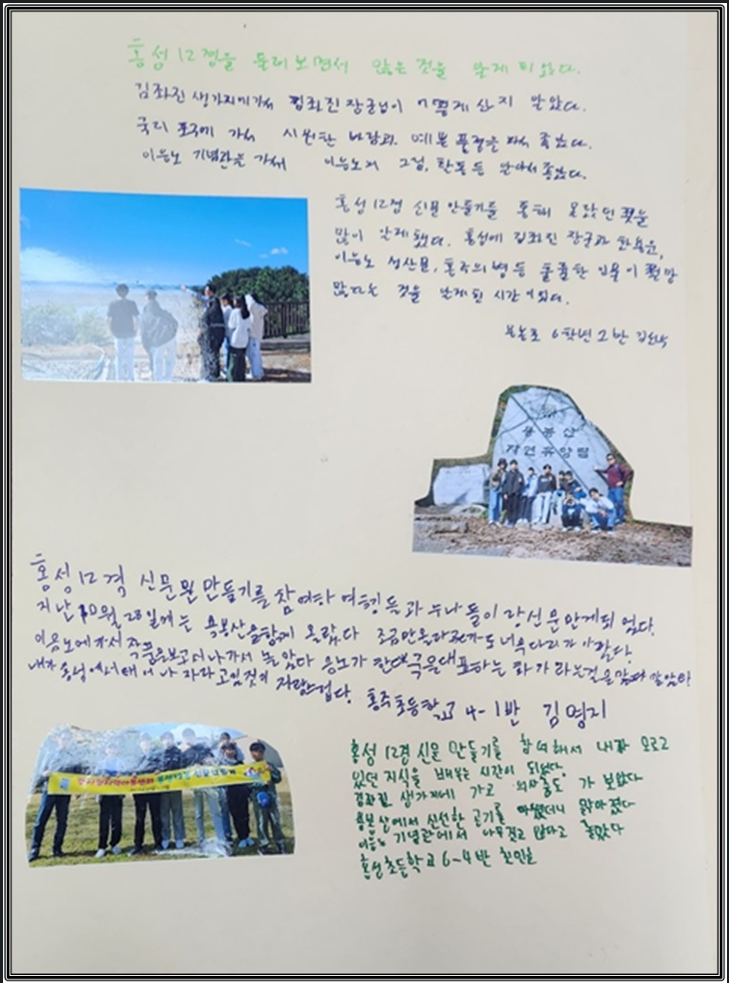 홍성 12경을 둘러보면서 많은 것을 알게 되었다.
김좌진 생가지에 가서 김좌진 장군님이 어떻게 산지 알았다.
궁리 포구에 가서 시원한 바람과 예쁜 풍경을 봐서 좋았다.
이응노 기념관을 가서 이응노의 그림, 활동 등 알아서 좋았다.
홍성 12경 신문 만들기를 통해 몰랐던 것을
많이 알게 됐다. 홍성에 김좌진 장군과 한용운,
이응노 성삼문, 등 훌륭한 인물이 정말
많다는 것을 알게 된 시간이었다.
6학년 2반
용봉산
자연휴양림
홍성 12경 신문 만들기를 참여하 형 등과 누나들이랑 신문 만게되 었다.
지난 10월 28일에는 용봉산을 함께 올랐다 조금만 올라 너무 다리가 아팠다.
이응노에 가서 작품을 보고 나가서 놀았다 응노가 한대국을 대표하는 화가라는것을
내가 홍성에서 태어나 자라고 있것이 자랑스럽다. 홍주초등학교 4-1반 김명지
홍성 12경 신문 만들기를 참여해서 내가 모르고
있던 지식을 배우는 시간이 되었다.
김좌진 생가지에 가고 가 보았다
용봉산에서 신선한 공기를 마셨더니 맑아졌다
이응노 기념관에서 놀았다
홍성초등학교 6-4반